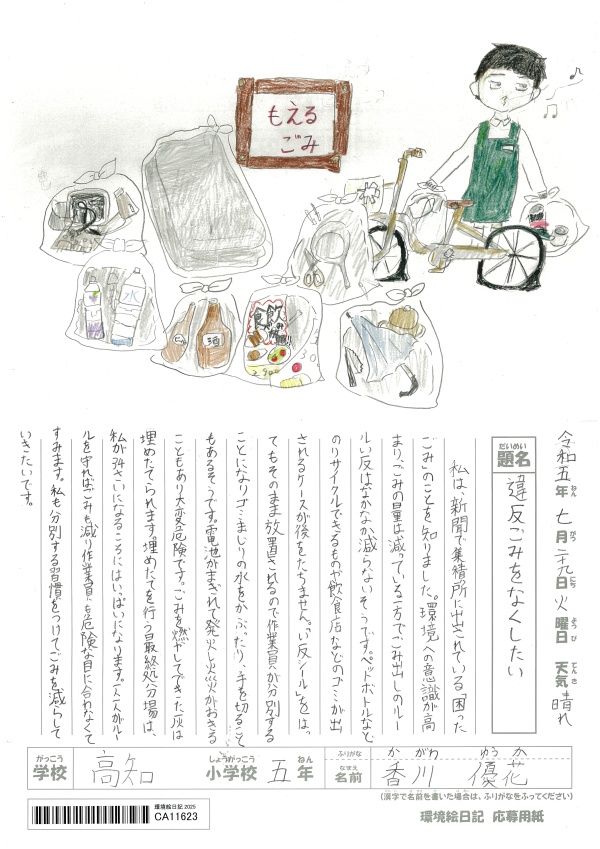 もえる
ごみ
水
酒
飲み
食べ
放題!
令和五年 七月二十九日 火曜日 天気 晴れ
ねん がつ にち ようび てんき
だいめい
題名
違反ごみをなくしたい
私は、新聞で集積所に出されている「困った
ごみ」のことを知りました。環境への意識が高
まり、ごみの量は減っている一方でごみ出しのルー
ルい反はなかなか減らないそうです。ペットボトルなど
のリサイクルできるものや飲食店などのゴミが出
されるケースが後をたちません。「い反シール」をはっ
てもそのまま放置されるので作業員が分別する
ことになりゴミまじりの水をかぶったり、手を切ること
もあるそうです。電池がまぎれて発火し火災がおきる
こともあり大変危険です。ごみを燃やしてできた灰は
埋めたてられます。埋めたてを行う最終処分場は、
私が34さいになるころにはいっぱいになります。一人一人がルー
ルを守ればごみも減り作業員も危険な目に合わなくて
すみます。私も分別する習慣をつけてごみを減らして
いきたいです。
がっこう しょうがっこう ねん ふりがな かがわ ゆうか
学校 高知 小学校 五年 なまえ 名前 香川 優花
(漢字で名前を書いた場合は、ふりがなをふってください)
環境絵日記 2025
CA11623
環境絵日記 応募用紙